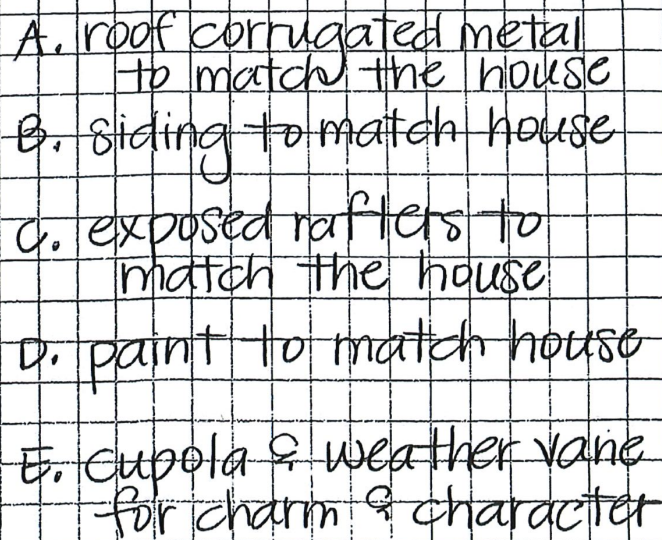 A. roof corrugated metal
to match the house
B. siding to match house
C. exposed rafters to
match the house
D. paint to match house
E. cupola & weather vane
for charm & character